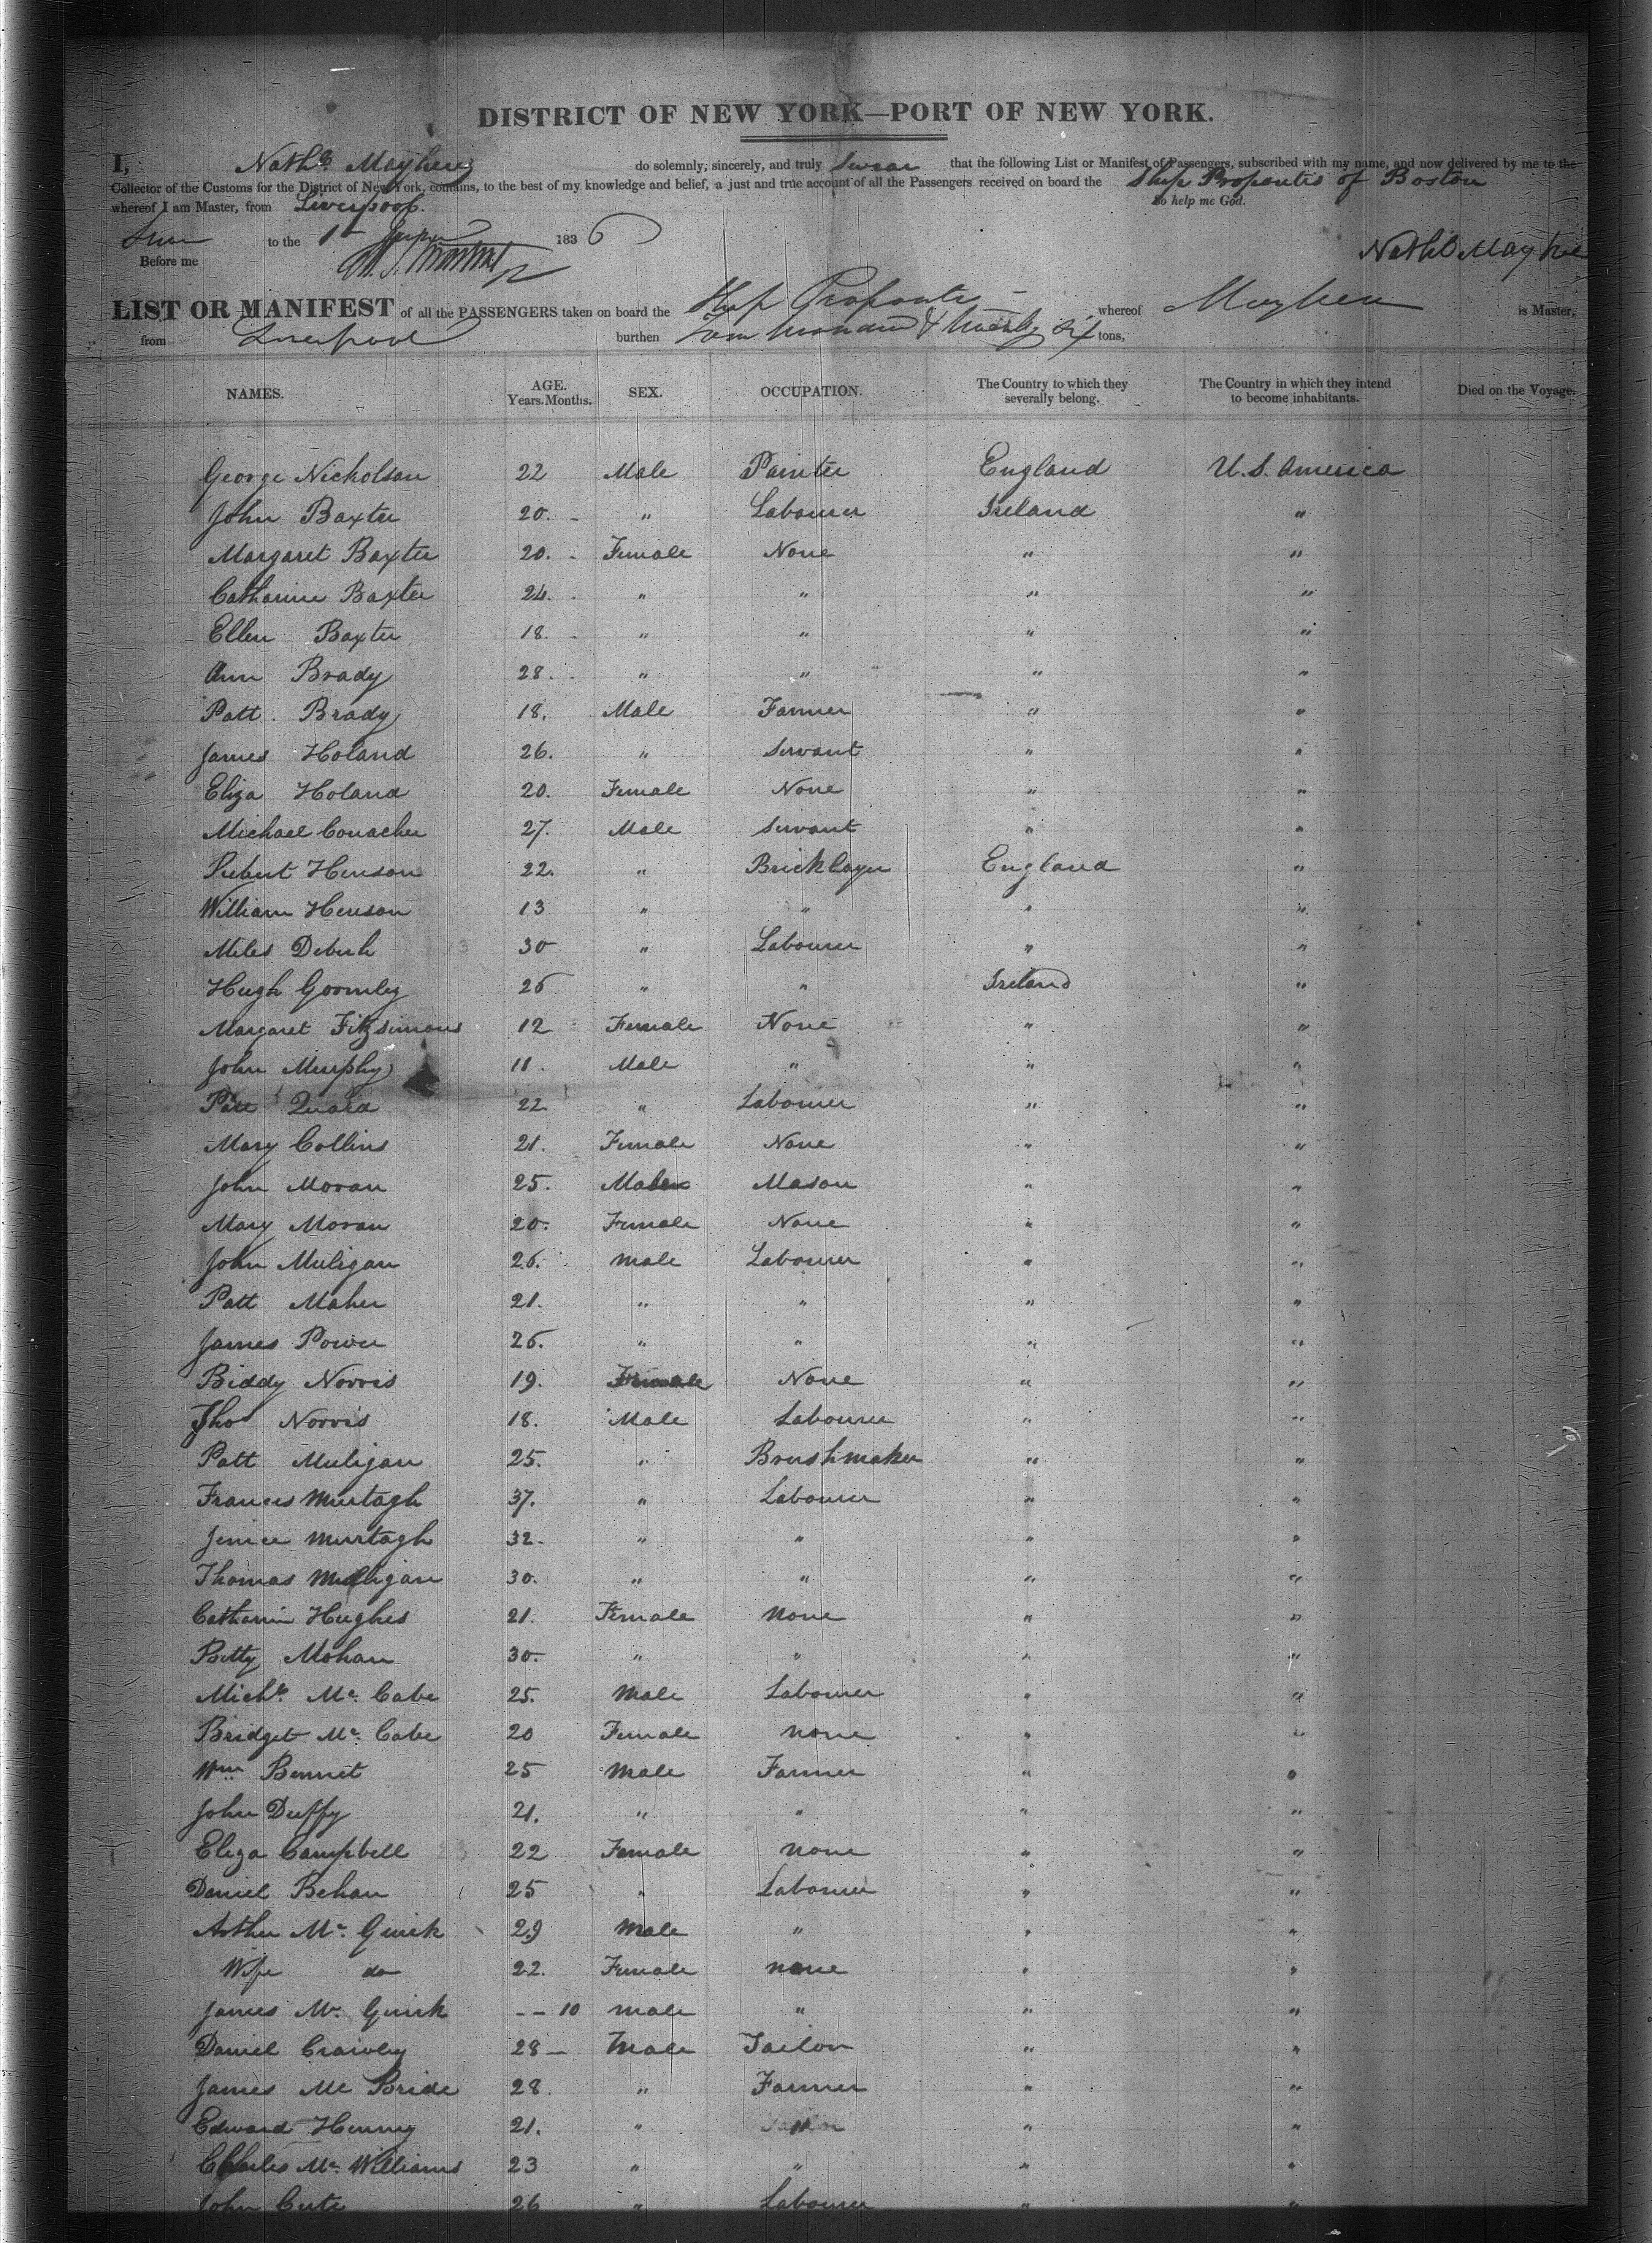 DISTRICT OF NEW YORK—PORT OF NEW YORK.
I, Nathl Mayhew do solemnly, sincerely, and truly swear that the following List or Manifest of Passengers, subscribed with my name, and now delivered by me to the
Collector of the Customs for the District of New York, contains, to the best of my knowledge and belief, a just and true account of all the Passengers received on board the Ship Propontis of Boston
whereof I am Master, from Liverpool. So help me God.
to the 1st 1836
Before me Nathl Mayhew
LIST OR MANIFEST of all the PASSENGERS taken on board the Ship Propontis whereof Mayhew is Master,
from Liverpool burthen hundred & Six tons,
NAMES. AGE. Years. Months. SEX. OCCUPATION. The Country to which they severally belong. The Country in which they intend to become inhabitants. Died on the Voyage.
George Nicholson 22 Male Painter England U.S. America
John Baxter 20. - " Labourer Ireland "
Margaret Baxter 20. - Female None " "
Catharine Baxter 24. - " " " "
Ellen Baxter 18. - " " " "
Ann Brady 28. . " " " "
Patt. Brady 18. Male Farmer " "
James Holand 26. " Servant " "
Eliza Holand 20. Female None " "
Michael Conacher 27. Male Servant " "
Henson 22. " Bricklayer England "
William Henson 13 " " " "
Miles 30 " Labourer " "
Hugh Gormley 26 " " Ireland "
Margaret Fitzsimons 12 Female None " "
John Murphy 11. Male " " "
Patt Quaid 22 " Labourer " "
Mary Collins 21. Female None " "
John Moran 25. Male Mason " "
Mary Moran 20. Female None " "
John Muligan 26. Male Labourer " "
Patt Maher 21. " " " "
James Power 26. " " " "
Biddy Norris 19. Female None " "
Thos Norris 18. Male Labourer " "
Patt Muligan 25. " Brushmaker " "
Francis Murtagh 37. " Labourer " "
Murtagh 32. " " " "
Thomas Mulligan 30. " " " "
Catharin Hughes 21. Female None " "
Betty Mohan 30. " " " "
Michl. Mc. Cabe 25. Male Labourer " "
Bridget Mc. Cabe 20 Female none " "
Wm Bennet 25 Male Farmer " "
John Duffy 21. " " " "
Eliza Campbell 22 Female none " "
Daniel Behan 25 " Labourer " "
Arthur Mc. Guirk 29 Male " " "
Wife do 22. Female none " "
James Mc. Guirk - - 10 male " " "
Daniel Crawley 28 - Male Tailor " "
James Mc Bride 28. " Farmer " "
Edward Henney 21. " " " "
Charles Mc. Williams 23 " " " "
John Cute 26 " Labourer " "